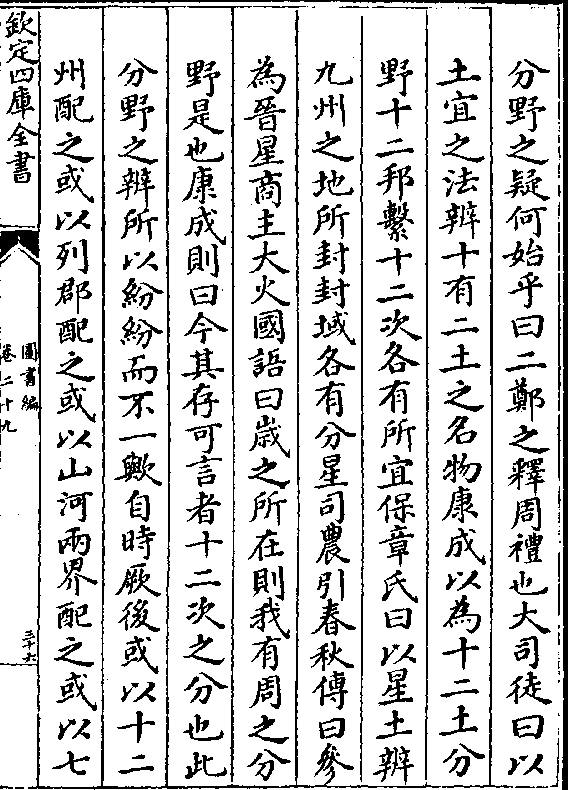 分野之疑何始乎曰二鄭之釋周禮也大司徒曰以
土宜之法辨十有二土之名物康成以為十二土分
野十二邦繫十二次各有所宜保章氏曰以星土辨
九州之地所封封域各有分星司農引春秋傳曰參
為晉星商主大火國語曰歲之所在則我有周之分
野是也康成則曰今其存可言者十二次之分也此
分野之辨所以紛紛而不一歟自時厥後或以十二
州配之或以列郡配之或以山河兩界配之或以七
欽定四庫全書
圖書編
卷二十九
三十六